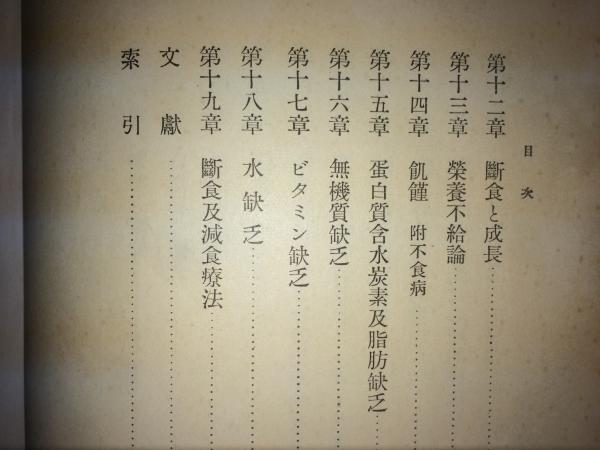 目次
第十二章 斷食と成長
第十三章 榮養不給論
第十四章 飢饉 附不食病
第十五章 蛋白質含水炭素及脂肪缺乏
第十六章 無機質缺乏
第十七章 ビタミン缺乏
第十八章 水缺乏
第十九章 斷食及減食療法
文獻
索引